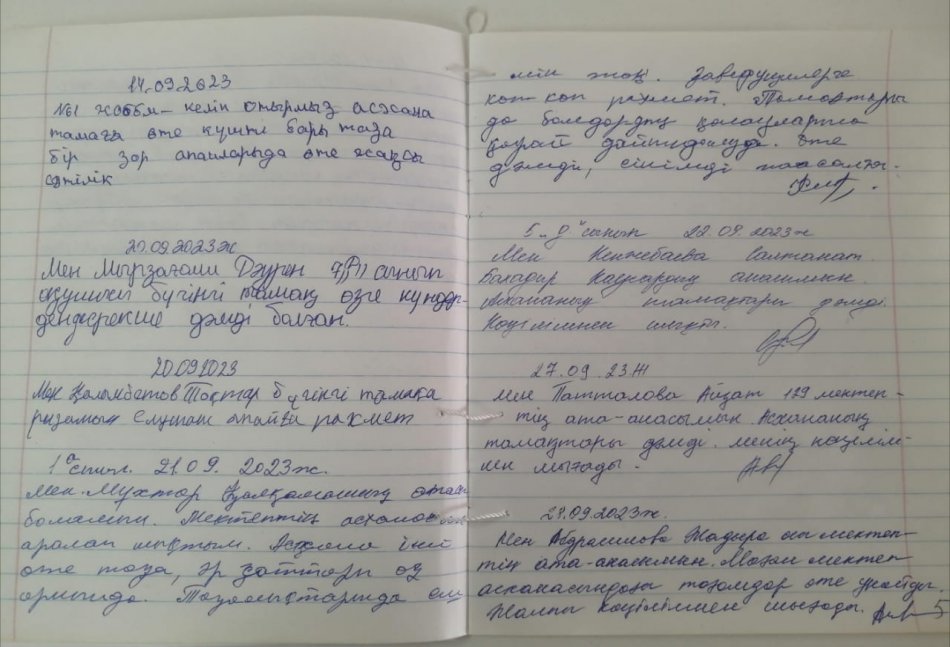 14.09.2023
№1 жоббм - келіп отырмыз асхана
тамағы өте күшті бары таза
бір зор апайларыда өте жақсы
сәттілік
20.09.2023ж
Мен Мырзағали Дәурен 7"Р" сынып
оқушысы бүгінгі тамақ өзге күндер-
ден ерекше дәмді болған.
20.09.2023
Мен Қалымбетов Тоқтар бүгінгі тамаққа
ризамын апайға рахмет
1 сынып. 21.09. 2023ж.
Мен Мұхтар
боламын. Мектептің асханасын
аралап шықтым. Асхана іші
өте таза, әр заттары өз
орнында. Тазалықтарында
мін жоқ. Заведущилерге
көп-көп рахмет. Тамақтары
да балалардың қалауларына
қарай дайындалуда. Өте
дәмді, сіңімді
5 "Д" сынып 22.09.2023ж
Мен Кенжебаева Салтанат.
Баладир анасымын.
Асхананың тамақтары дәмді.
Көңілімнен шықты.
27.09.23ж
Мен Патталова Айзат 129 мектеп-
тің ата-анасымын. Асхананың
тамақтары дәмді. менің көңілім-
нен шығады.
28.09.2023ж.
Мен Абдрасилова Жадыра осы мектеп-
тің ата-анасымын. Маған мектеп
асханасындағы тағамдар өте ұнайды.
Жалпы көңілімнен шығады.